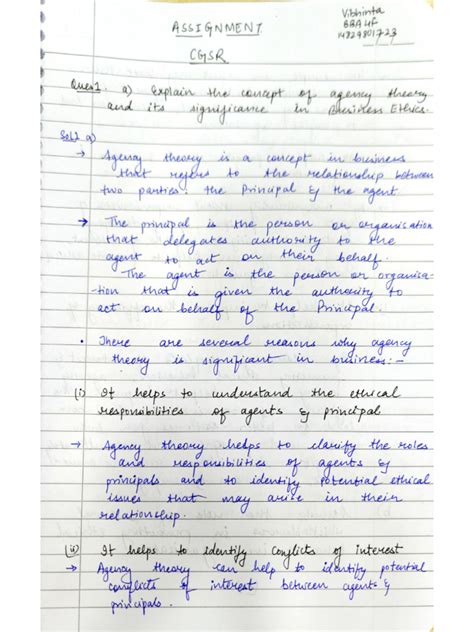 Vibhinta
BBA 4F
14829801723
ASSIGNMENT
CGSR
Ques 1. a) Explain the concept of agency theory
and its significance in Business Ethics.
Sol 1 a)
→ Agency theory is a concept in business
that refers to the relationship between
two parties: the Principal & the agent
→ The principal is the person or organisation
that delegates authority to the
agent to act on their behalf.
The agent is the person or organisa-
-tion that is given the authority to
act on behalf of the Principal.
• There are several reasons why agency
theory is significant in business:-
(i) It helps to understand the ethical
responsibilities of agents & principal
→ Agency theory helps to clarify the roles
and responsibilities of agents &
principals and to identify potential ethical
issues that may arise in their
relationship.
(ii) It helps to identify conflicts of interest
→ Agency theory can help to identify potential
conflicts of interest between agents &
principals.